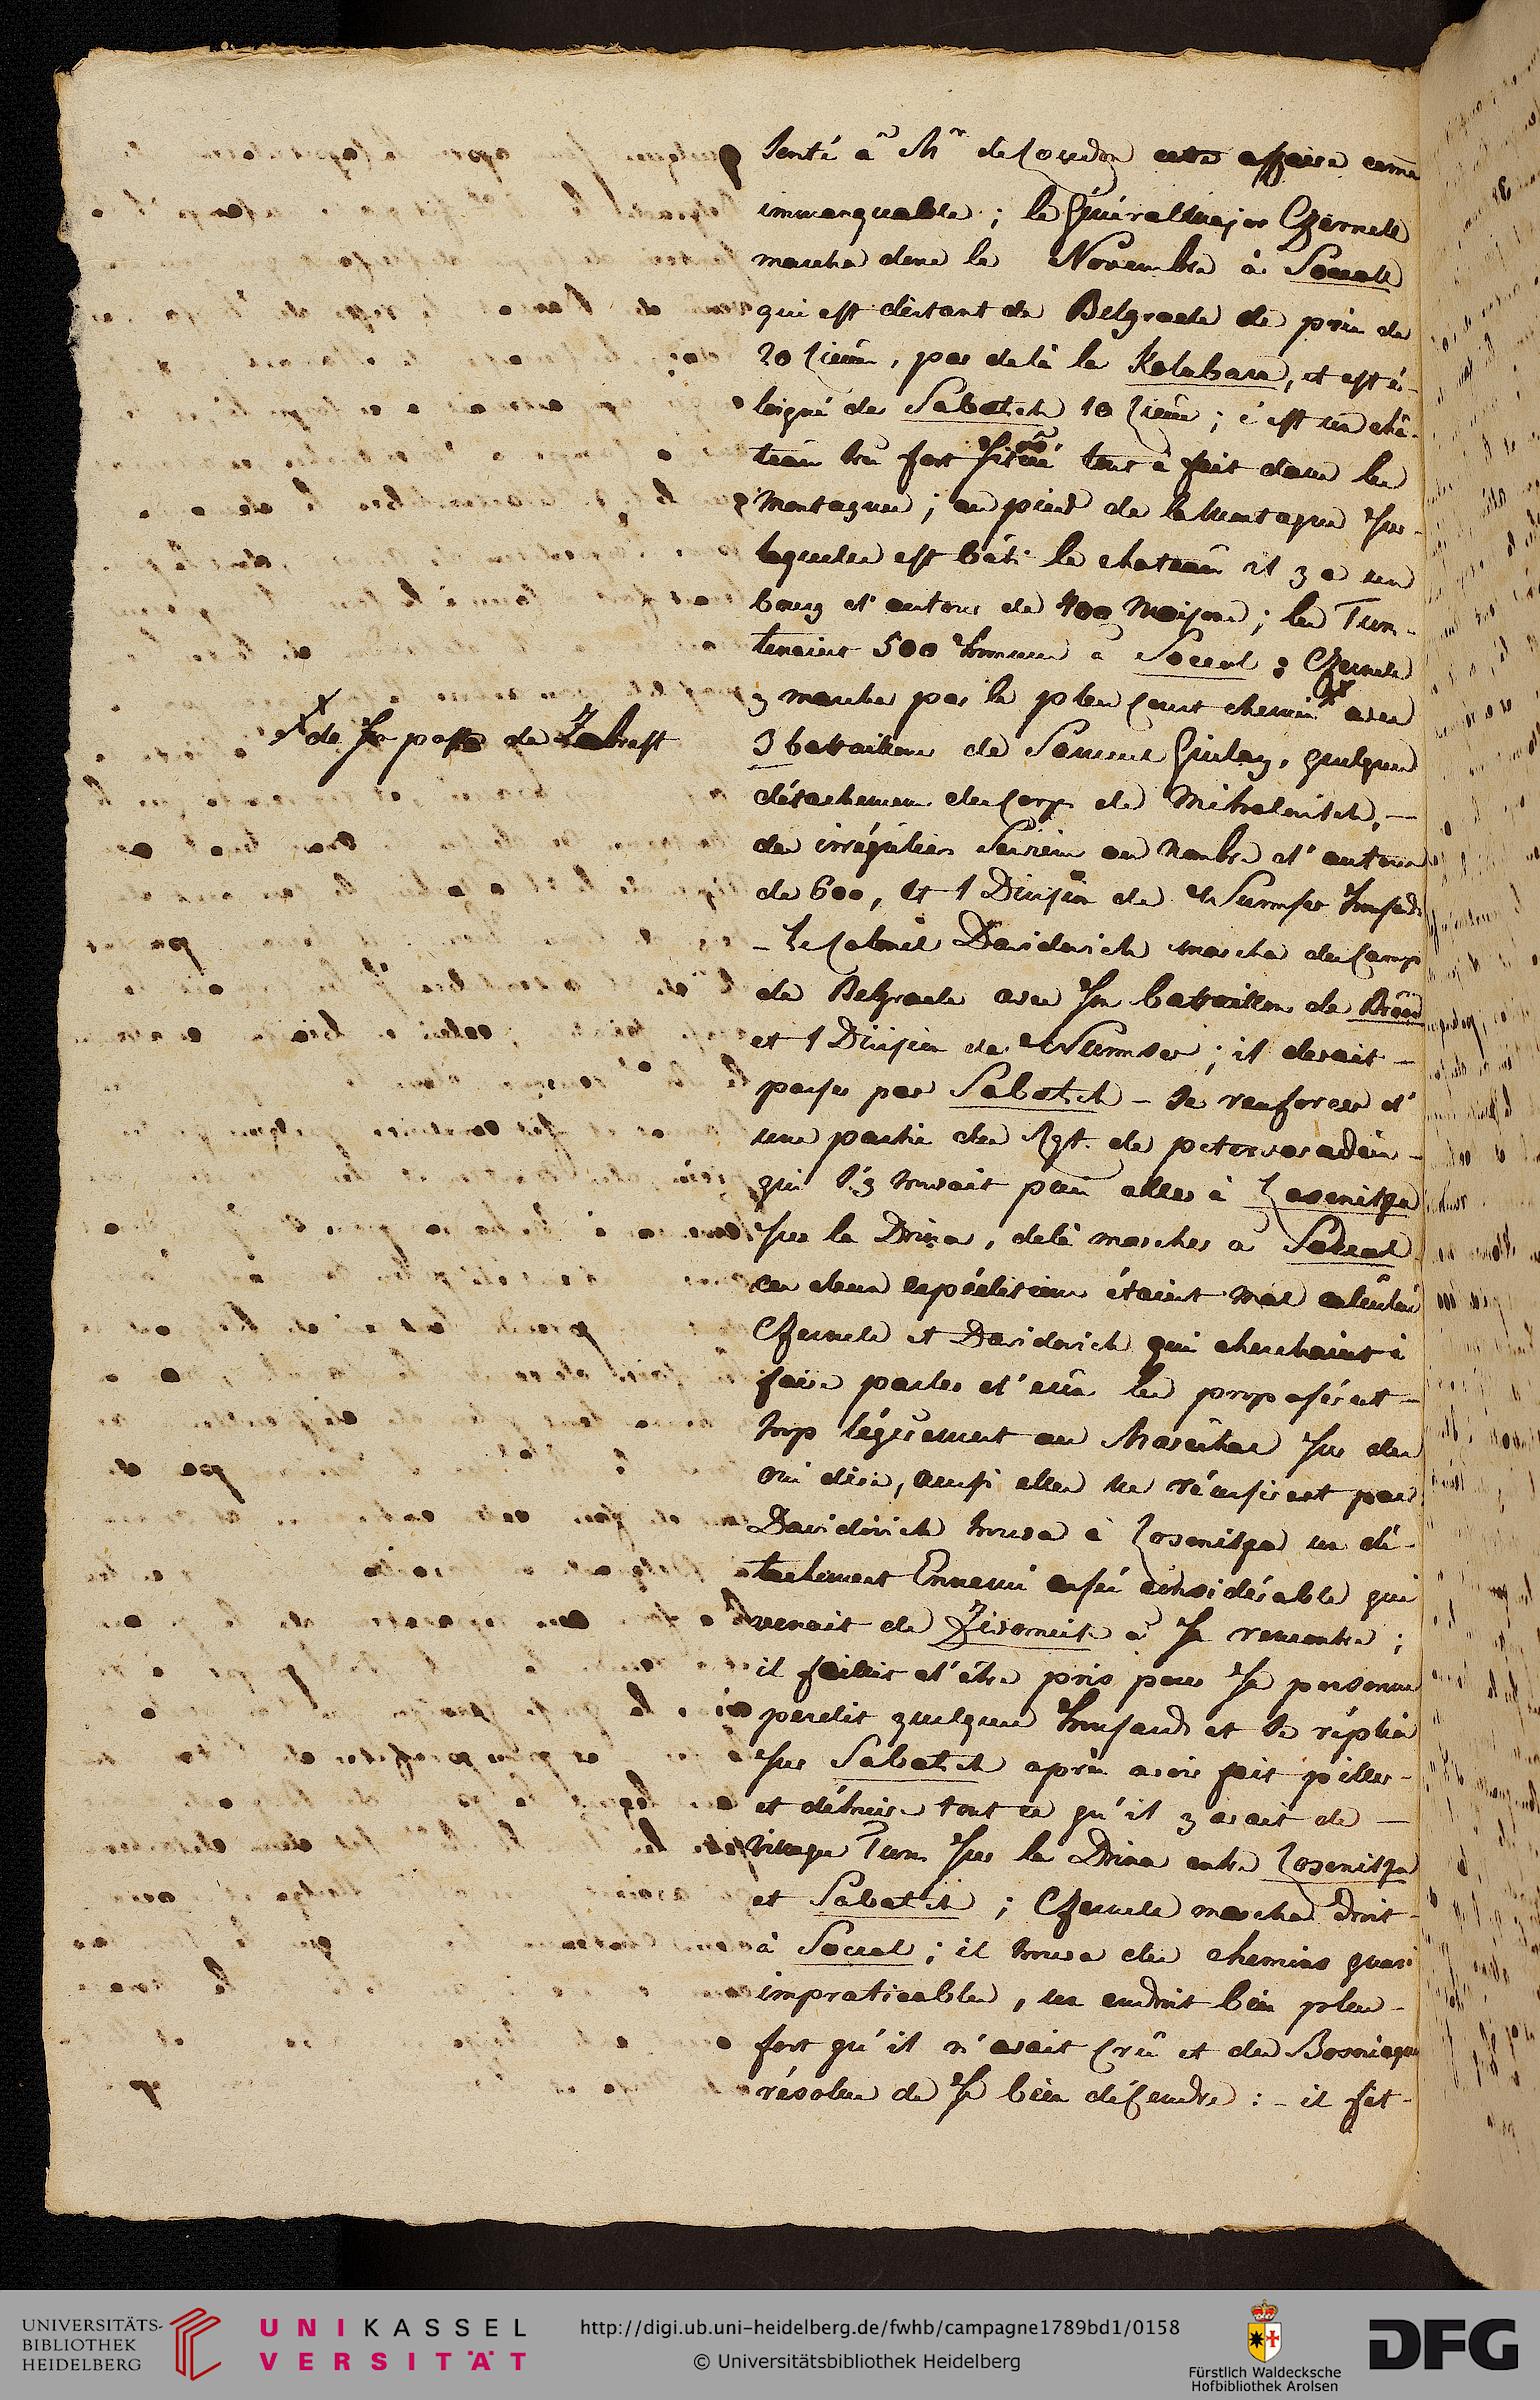 senté à Mr de Loudon cette affaire come
immanquable ; le Généralmajor Czernele
marcha donc le Novembre à Socol
qui est distant de Belgrade de près de
20 Lieues, par delà la Kolubara, et est é-
loigné de Sabatsch 10 Lieues ; c'est un châ-
teau très fort situé tout à fait dans les
montagnes ; au pied de la montagne sur
laquelle est bâti le chateau il y a un
bourg d'autour de 400 Maisons ; les Turcs
tenaient 500 hommes à Socol ; Czernele
y marcha par le plus court chemin X avec
X de son poste de Zabresh
3 bataillons de Samuel Giulay, quelques
détachemens du Corps de Mihalovitsch, —
des irréguliers Serviens au nombre d'autour
de 600, et 1 Division de Wurmser houssards
- Le Colonel Davidovich marcha du Camp
de Belgrade avec son bataillon de Brood
et 1 Division de Wurmser ; il devait —
passer par Sabatsch - se renforcer d'
une partie du Rgt. de peterwaradein -
qui s'y trouvait puis aller à Losenitza
sur la Drina, delà marcher à Socol
ces deux expéditions étaient mal calculées
Czernele et Davidovich qui cherchaient à
faire parler d'eux les proposérent —
trop légérement au Maréchal sur des
oui dire, aussi elles ne réussirent pas
Davidovich trouva à Losenitza un dé-
tachement Ennemi assés considérable qui
venait de Zwornick à sa rencontre ;
il faillit d'être pris pour sa personne
perdit quelques houssards et se réplia
sur Sabatsch après avoir fait piller -
et détruire tout ce qu'il y avait de —
villages Turcs sur la Drina entre Losenitza
et Sabatsch ; Czernele marcha droit -
à Socol ; il trouva des chemins quasi
impraticables, un endroit bien plus -
fort qu'il n'avait crû et des Bosniaques
résolus de se bien défendre : - il fit -
UNIVERSITÄTS-
BIBLIOTHEK
HEIDELBERG
UNIKASSEL
VERSITÄT
http://digi.ub.uni-heidelberg.de/fwhb/campagne1789bd1/0158
© Universitätsbibliothek Heidelberg
Fürstlich Waldecksche
Hofbibliothek Arolsen
DFG